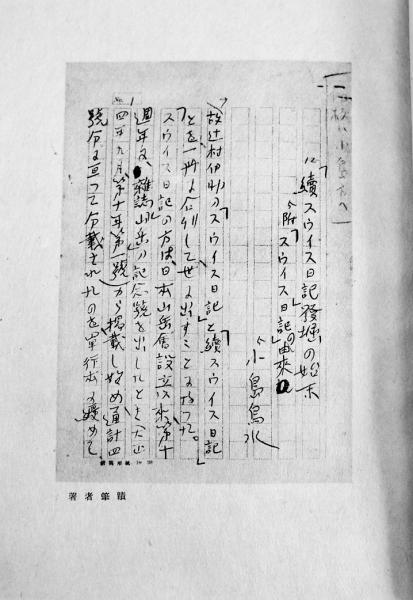 小島方へ
「續スウイス日記」發掘の始末
附「スウイス日記」の由来
小島烏水
故辻村伊助の「スウイス日記」と「續スウイス日記」
とを一册に合刊して世に出すことになつた。
「スウイス日記」の方は日本山岳會設立以來第十
週年に、雜誌「山岳」の記念號を出したとき(大正
四年九月第十年第一號)から掲載し始め通計四
號分に亘つて分載されたのを單行本に纏めて
著者筆蹟